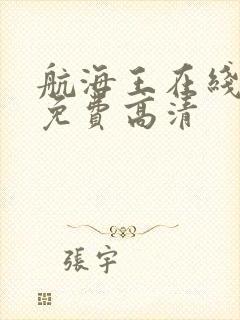 航海王在綫
免費高清
張宇